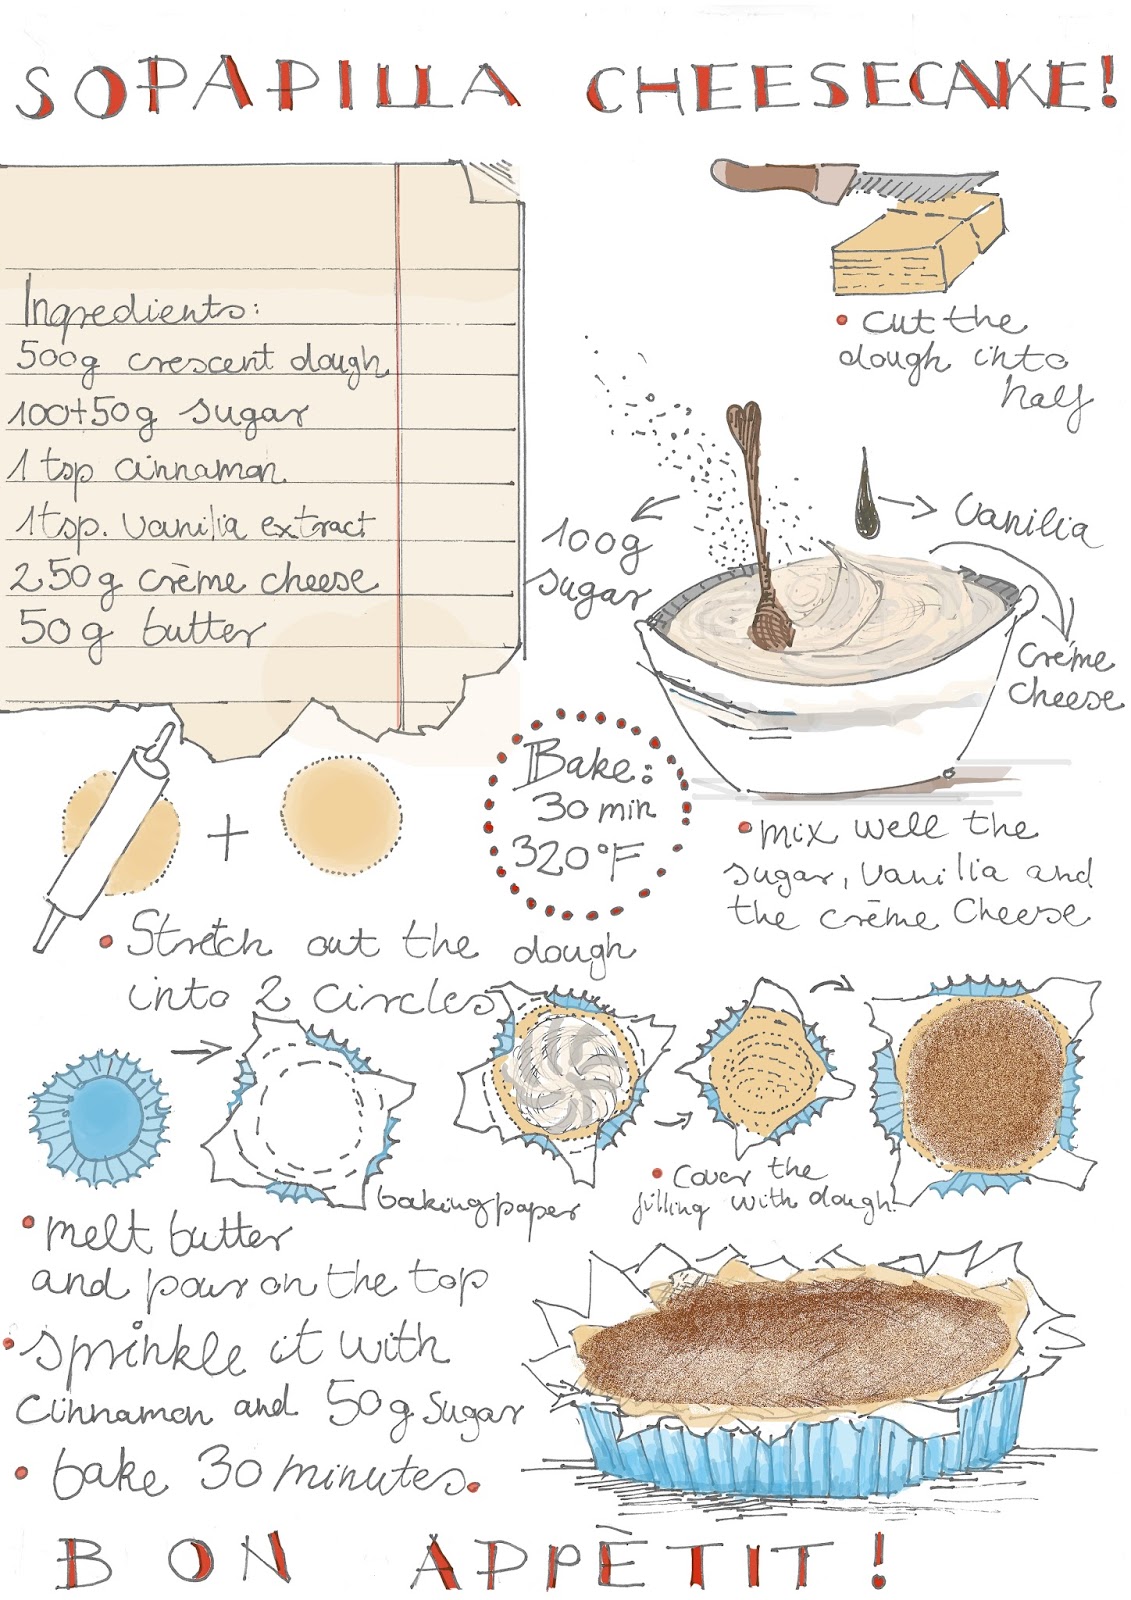 SOPAPILLA CHEESECAKE!
Ingredients:
500g crescent dough
100+50g sugar
1 tsp cinnamon
1tsp. vanilia extract
250g crème cheese
50g butter
• cut the
dough into
half
100g
sugar
Vanilia
Créme
Cheese
• mix well the
sugar, vanilia and
the crème Cheese
Bake:
30 min
320°F
+
• Stretch out the dough
into 2 circles
baking paper
• Cover the
filling with dough.
• melt butter
and pour on the top
• sprinkle it with
cinnamon and 50g sugar
• bake 30 minutes.
BON APPÈTIT!